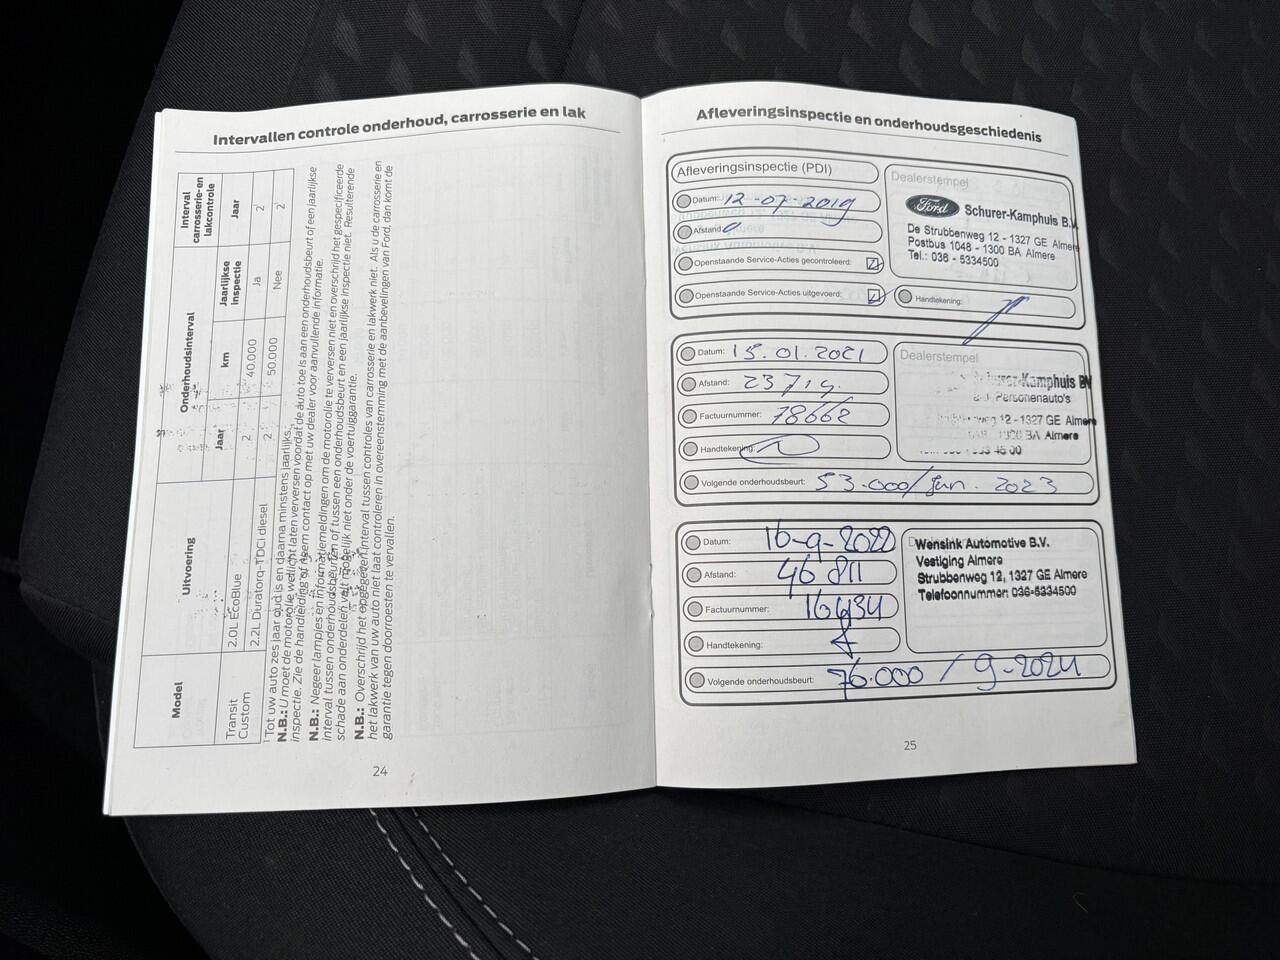 Intervallen controle onderhoud, carrosserie en lak
Model
Uitvoering
Onderhoudsinterval
Interval carrosserie-en lakcontrole
Jaar
km
Jaarlijkse inspectie
Jaar
Transit Custom
2.0L EcoBlue
2
40.000
Ja
2¹
2.2L Duratorq-TDCi diesel
2
50.000
Nee
2¹
¹ Tot uw auto zes jaar oud is en daarna minstens jaarlijks.
N.B.: U moet de motorolie wellicht laten verversen voordat de auto toe is aan een onderhoudsbeurt of een jaarlijkse
inspectie. Zie de handleiding of neem contact op met uw dealer voor aanvullende informatie.
N.B.: Negeer lampjes en informatiemeldingen om de motorolie te verversen niet en overschrijd het gespecificeerde
interval tussen onderhoudsbeurten of tussen een onderhoudsbeurt en een jaarlijkse inspectie niet. Resulterende
schade aan onderdelen valt mogelijk niet onder de voertuiggarantie.
N.B.: Overschrijd het opgegeven interval tussen controles van carrosserie en lakwerk niet. Als u de carrosserie en
het lakwerk van uw auto niet laat controleren in overeenstemming met de aanbevelingen van Ford, dan komt de
garantie tegen doorroesten te vervallen.
24
Afleveringsinspectie en onderhoudsgeschiedenis
Afleveringsinspectie (PDI)
Datum: 12-07-2019
Afstand:
Openstaande Service-Acties gecontroleerd:
Openstaande Service-Acties uitgevoerd:
Dealerstempel
Ford Schurer-Kamphuis B.V.
De Strubbenweg 12 - 1327 GE Almere
Postbus 1048 - 1300 BA Almere
Tel.: 036 - 5334500
Handtekening:
Datum: 15.01.2021
Afstand: 23719.
Factuurnummer: 78662
Handtekening:
Volgende onderhoudsbeurt: 53.000/jan. 2023
Dealerstempel
Schurer-Kamphuis BV
Personenauto's
12 - 1327 GE Almere
1300 BA Almere
45 00
Datum: 16-9-2022
Afstand: 46811
Factuurnummer: 16434
Handtekening:
Volgende onderhoudsbeurt: 76.000 / 9-2024
Wensink Automotive B.V.
Vestiging Almere
Strubbenweg 12, 1327 GE Almere
Telefoonnummer: 036-5334500
25